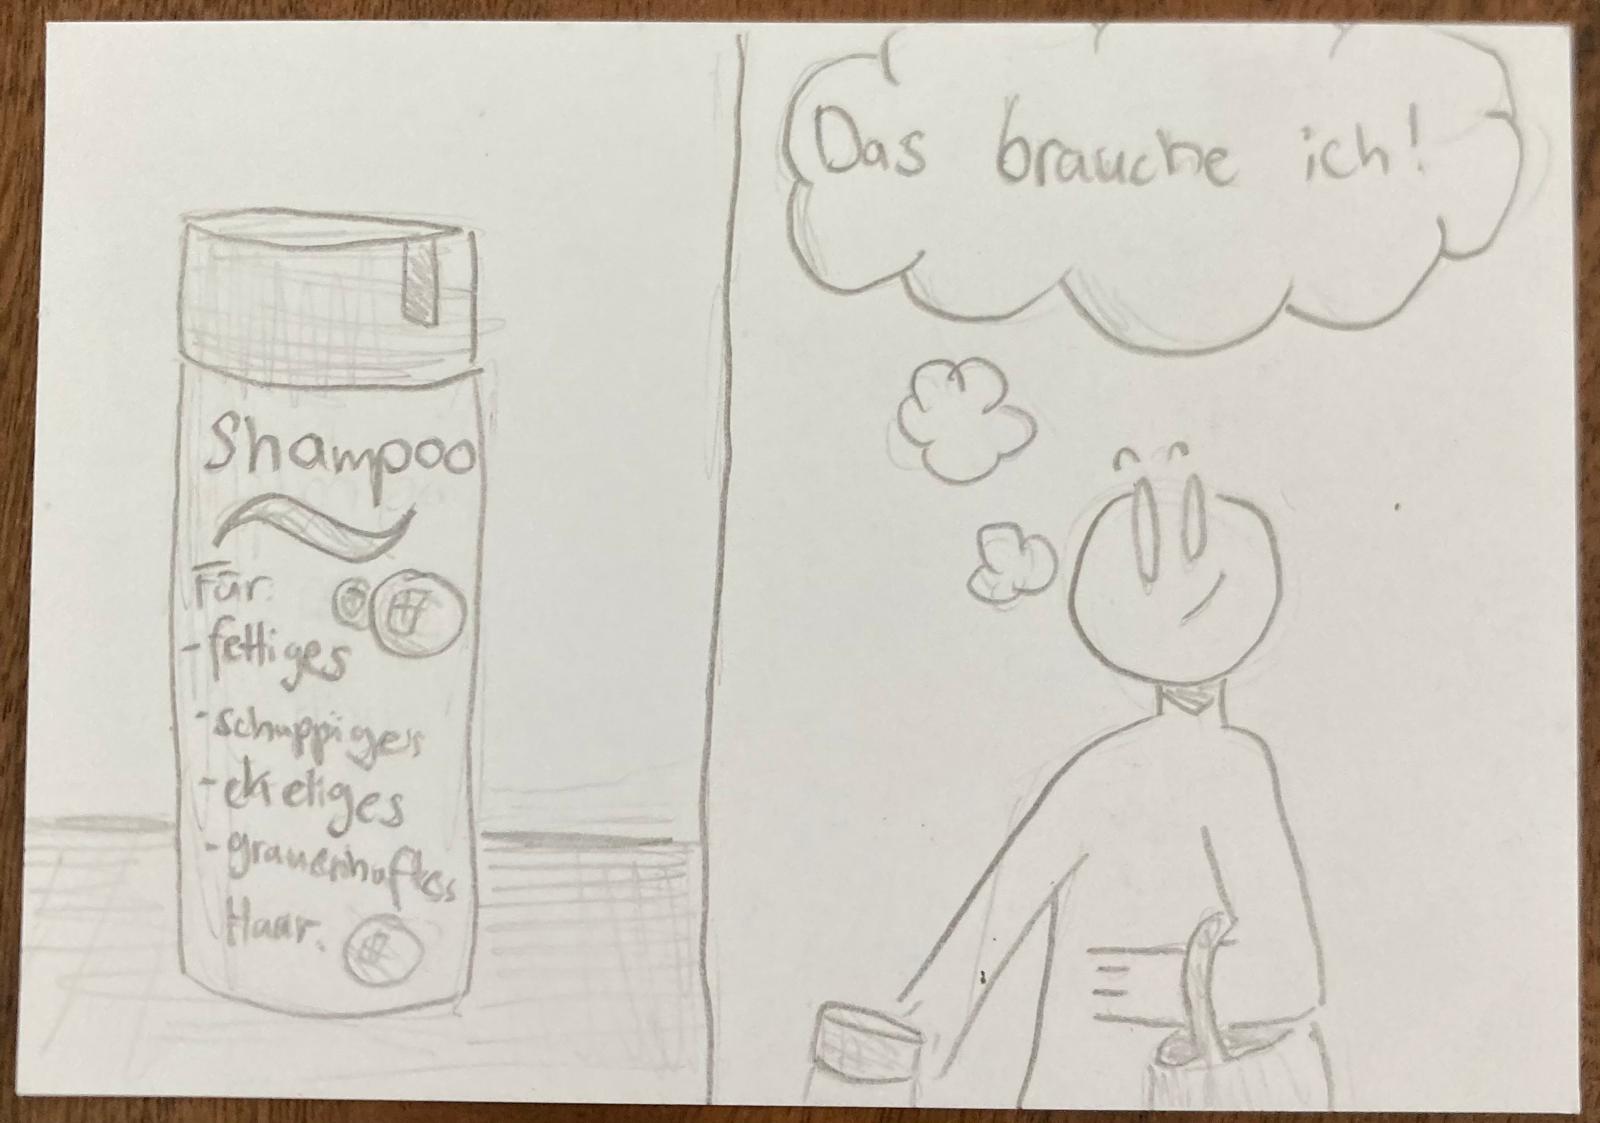 Shampoo
Für:
- fettiges
- schuppiges
- ekeliges
- grauenhaftes
Haar.
Das brauche ich!